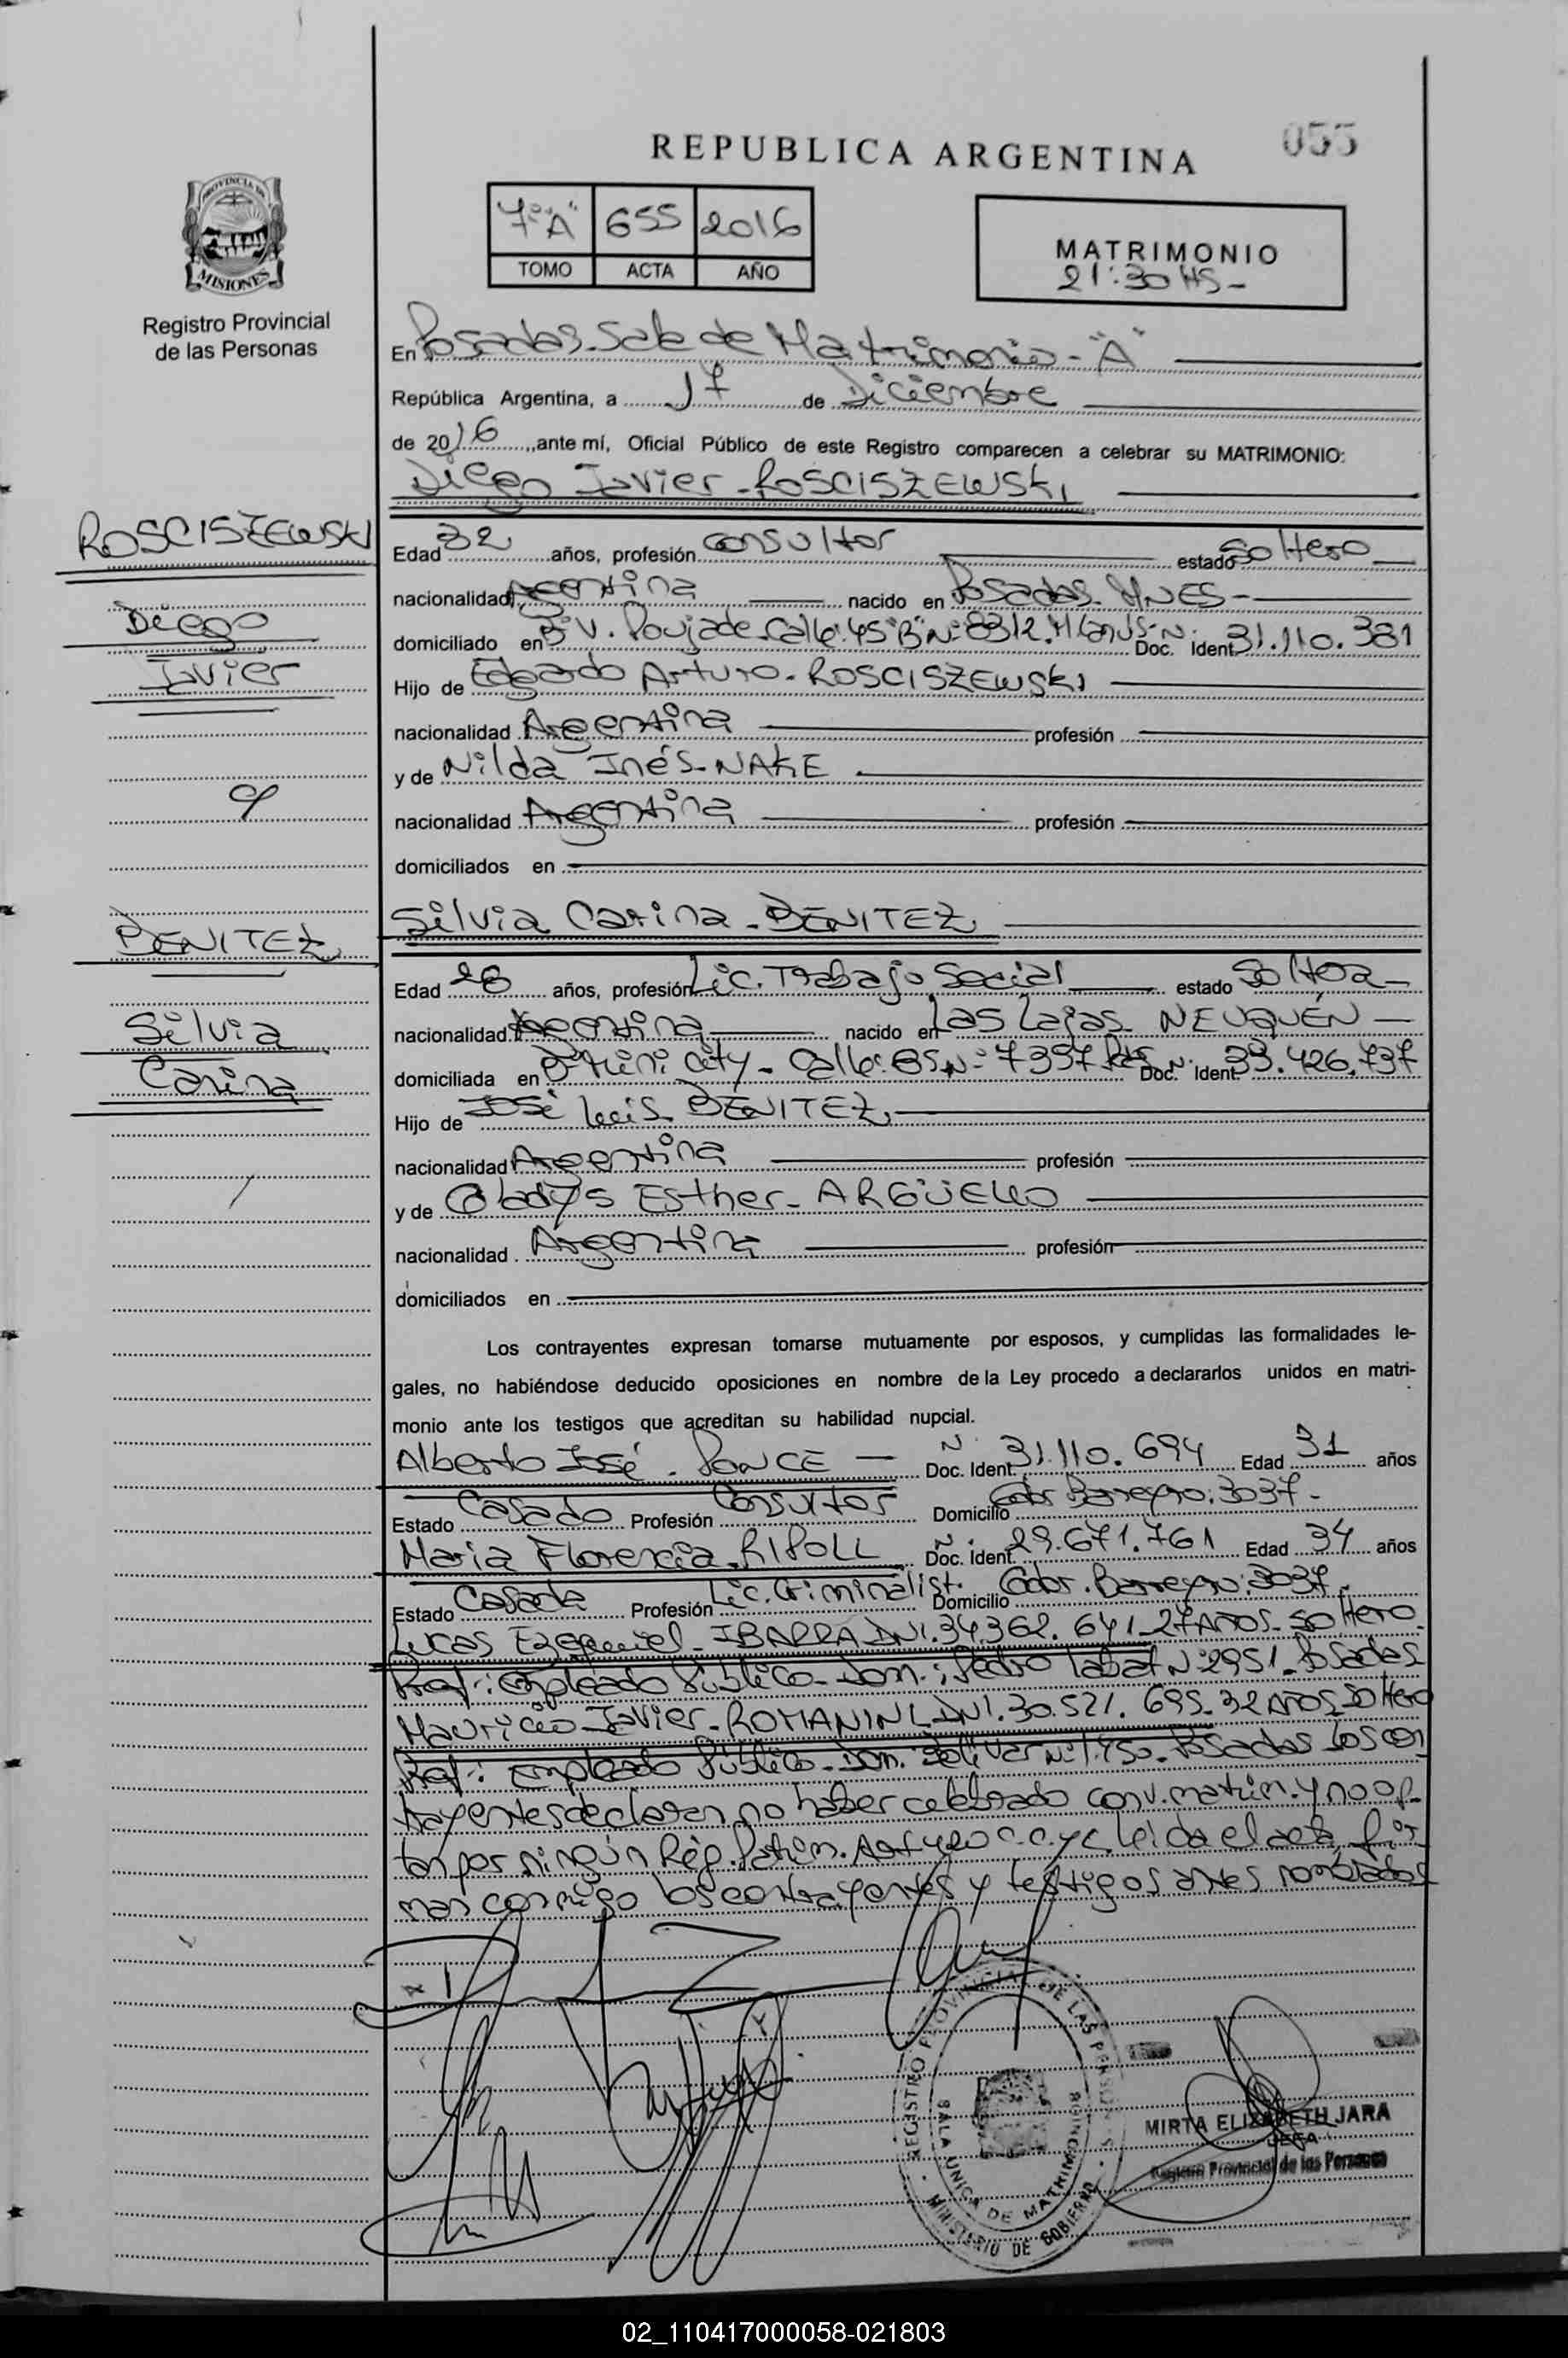 055
REPUBLICA ARGENTINA
PROVINCIA DE
MISIONES
Registro Provincial
de las Personas
7º "A" 655 2016
TOMO ACTA AÑO
MATRIMONIO
21:30 HS-
En Posadas. Sala de Matrimonio - "A"
República Argentina, a 17 de Diciembre
de 2016, ante mí, Oficial Público de este Registro comparecen a celebrar su MATRIMONIO:
Diego Javier - ROSCISZEWSKI
ROSCISZEWSKI
Diego
Javier
Edad 32 años, profesión Consultor estado Soltero
nacionalidad Argentina nacido en Posadas. MNES-
domiciliado en Bº V. Poujade. Calle: 45 "B" Nº: 8312. Doc. Ident. Nº 31.110.381
Hijo de Edgardo Arturo - ROSCISZEWSKI
nacionalidad Argentina profesión
y de Nilda Inés - NAKE
nacionalidad Argentina profesión
domiciliados en
Silvia Carina - BENITEZ
BENITEZ
Silvia
Carina
Edad 28 años, profesión Lic. Trabajo Social estado Soltera
nacionalidad Argentina nacido en Las Lajas. NEUQUÉN -
domiciliada en Bº Mini City - Calle: Nº: 7397 Doc. Ident. Nº 33.426.737
Hijo de José Luis. BENITEZ
nacionalidad Argentina profesión
y de Gladys Esther - ARGÜELLO
nacionalidad Argentina profesión
domiciliados en
Los contrayentes expresan tomarse mutuamente por esposos, y cumplidas las formalidades le-
gales, no habiéndose deducido oposiciones en nombre de la Ley procedo a declararlos unidos en matri-
monio ante los testigos que acreditan su habilidad nupcial.
Alberto José - PONCE - Doc. Ident. Nº 31.110.694 Edad 31 años
Estado Casado Profesión Consultor Domicilio Gdor Barreyro: 3037-
Maria Florencia - RIPOLL Doc. Ident. Nº 29.671.761 Edad 34 años
Estado Casada Profesión Lic. Criminalist. Domicilio Gdor. Barreyro: 3037
Lucas Ezequiel - IBARRA DNI. 34.362.641 - 27 AÑOS - Soltero
Prof: empleado Público - Dom.: Pedro Labat Nº 2951 - Posadas
Mauricio Javier - ROMANINI DNI. 30.521.695 - 32 AÑOS Soltero
Prof: empleado Público - Dom. Bolivar Nº 1.450 - Posadas Los con
trayentes declaran no haber celebrado conv. matrim. y no op-
tan por ningún Rég. Patrim. Art 420 C.C. y C. Leida el acta, fir
man conmigo los contrayentes y testigos antes nombrados
REGISTRO PROVINCIAL DE LAS PERSONAS
SALA UNICA DE MATRIMONIOS
MINISTERIO DE GOBIERNO
MIRTA ELIZABETH JARA
JEFA
Registro Provincial de las Personas
02_110417000058-021803